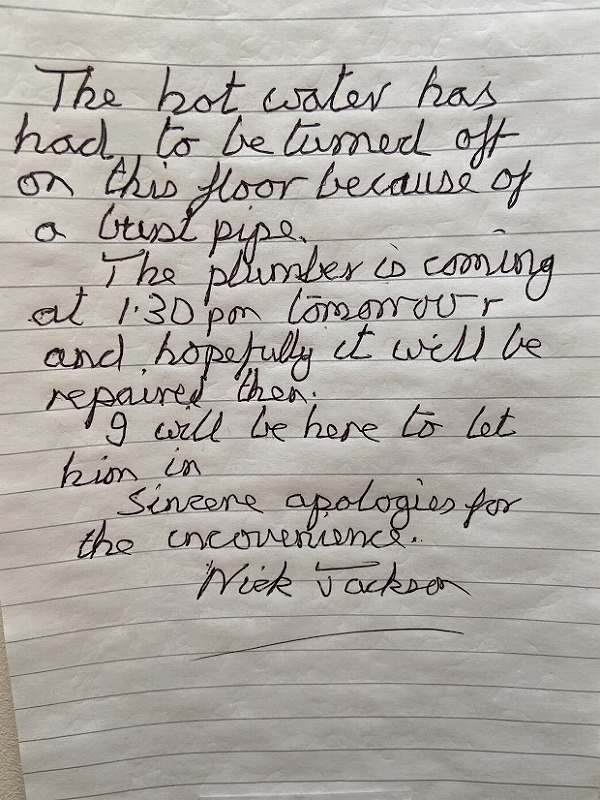 The hot water has
had to be turned off
on this floor because of
a burst pipe.
The plumber is coming
at 1.30 pm tomorrow
and hopefully it will be
repaired then.
I will be here to let
him in
Sincere apologies for
the incovenience.
Nick Jackson